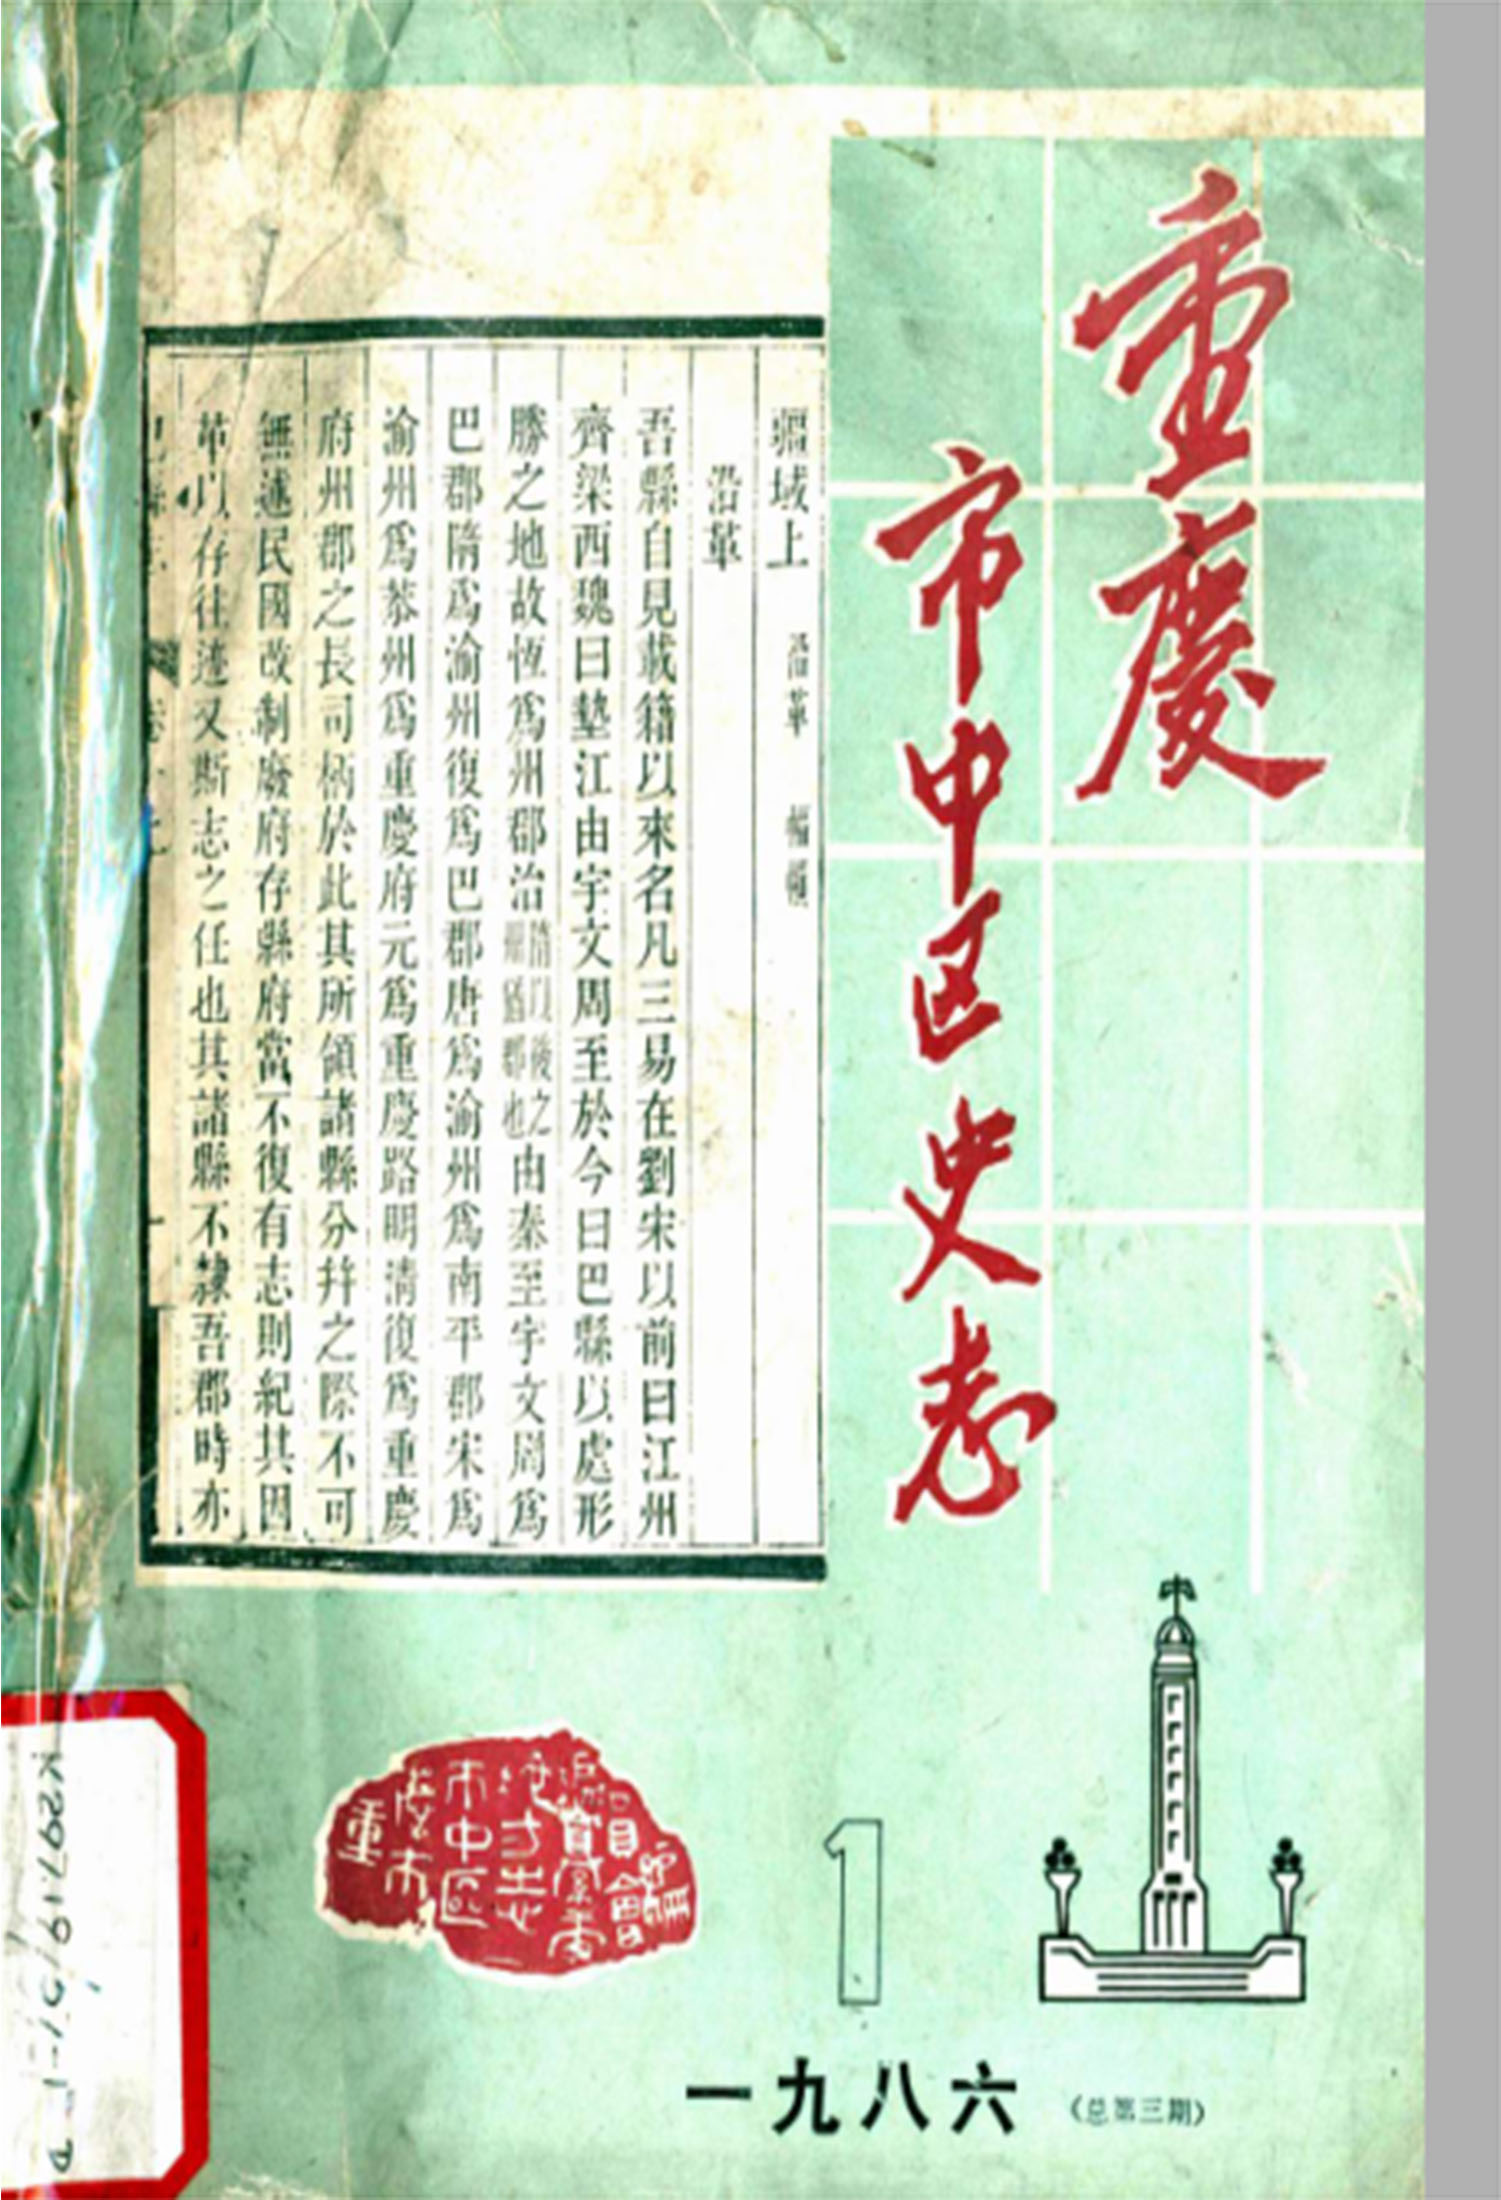 重慶
市中区史志
疆域上 沿革 幅𢄙
沿革
吾縣自見載籍以來名凡三易在劉宋以前曰江州
齊梁西魏曰墊江由宇文周至於今日巴縣以處形
勝之地故恆爲州郡治隋以後之州猶郡也由秦至宇文周爲
巴郡隋爲渝州復爲巴郡唐爲渝州爲南平郡宋爲
渝州爲恭州爲重慶府元爲重慶路明清復爲重慶
府州郡之長司柄於此其所領諸縣分幷之際不可
無述民國改制廢府存縣府當不復有志則紀其因
革以存往迹又斯志之任也其諸縣不隸吾郡時亦
重
慶市
市中区
地方志
編纂委
員會
1
一九八六 (总第三期)